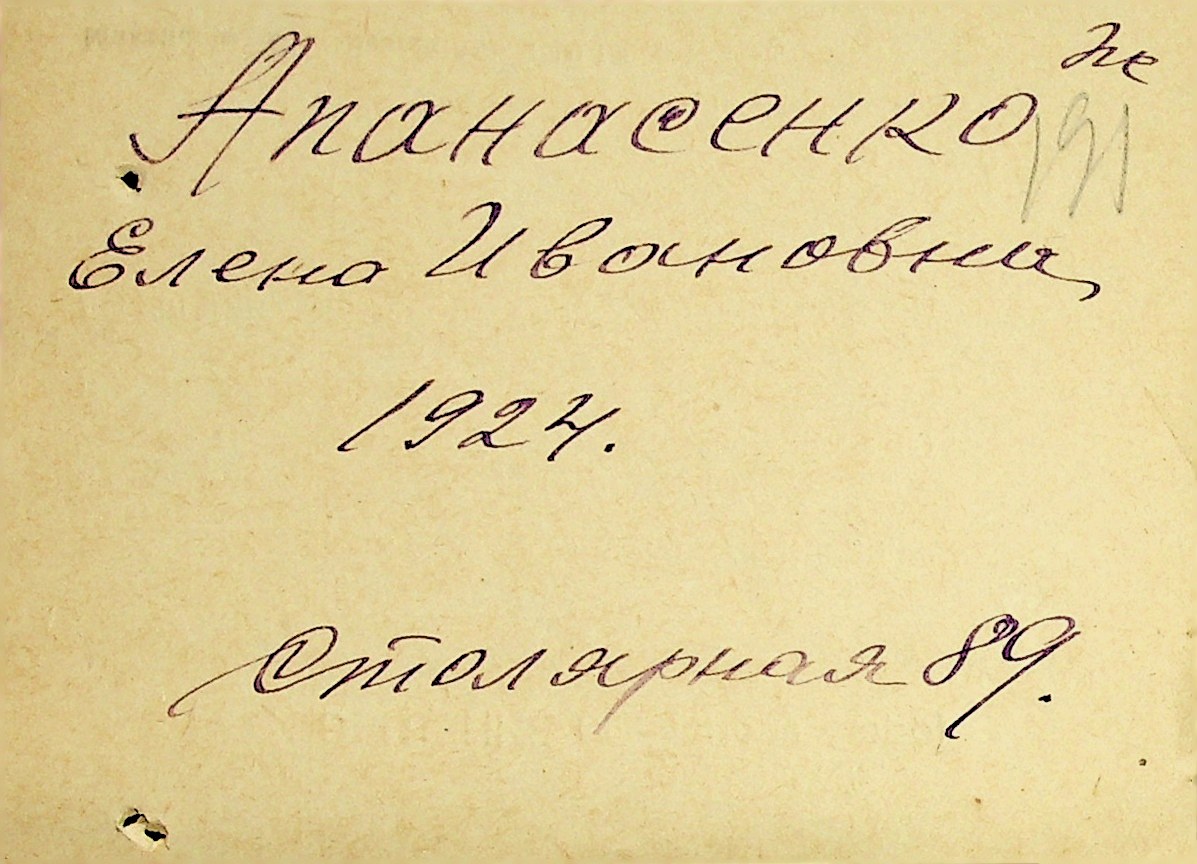 Апанасенко
191
Елена Ивановна
1924.
Столярная 89.